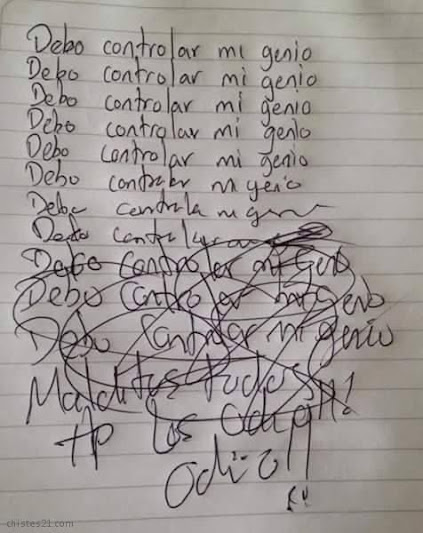 Debo controlar mi genio
Debo controlar mi genio
Debo controlar mi genio
Debo controlar mi genio
Debo controlar mi genio
Debo controlar mi genio
Debo
Debo
Debo controlar mi genio
Debo controlar mi genio
Debo controlar mi genio
Malditos todos!!
HP los odio!!
Odio!!
chistes21.com